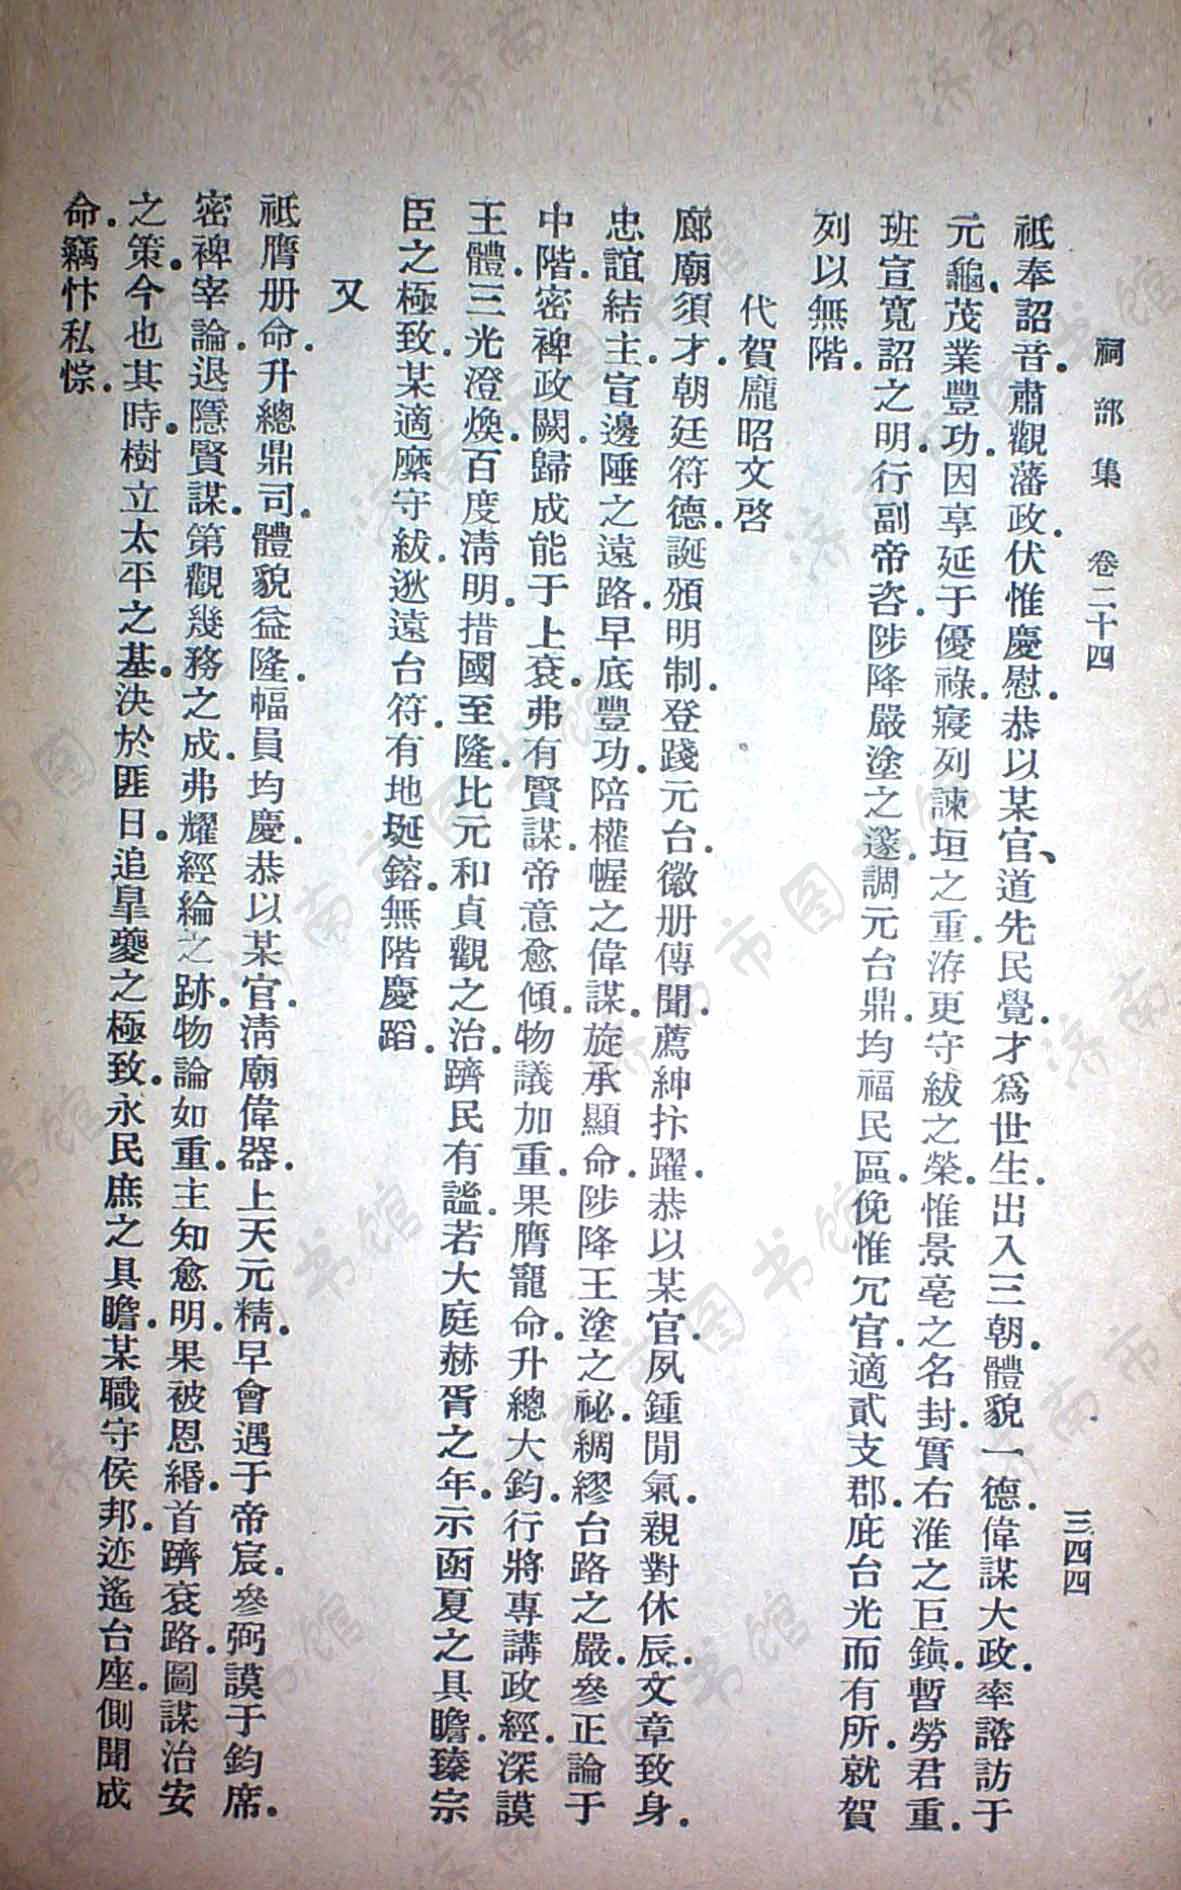 祠部集 卷二十四 三四四
祇奉詔音。肅觀藩政。伏惟慶慰。恭以某官、道先民覺。才爲世生。出入三朝。體貌一德。偉謀大政。率諮訪于
元龜。茂業豐功。因享延于優祿。寢列諫垣之重。洊更守紱之榮。惟景亳之名封。實右淮之巨鎮。暫勞君重。
班宣寬詔之明。行副帝咨。陟降嚴塗之邃。調元台鼎。均福民區。俛惟冗官。適貳支郡。庇台光而有所。就賀
列以無階。
代賀龐昭文啓
廊廟須才。朝廷符德。誕頒明制。登踐元台。徽册傳聞。薦紳抃躍。恭以某官。夙鍾閒氣。親對休辰。文章致身。
忠誼結主。宣邊陲之遠路。早底豐功。陪權幄之偉謀。旋承顯命。陟降王塗之祕。綢繆台路之嚴。參正論于
中階。密裨政闕。歸成能于上衮。弗有賢謀。帝意愈傾。物議加重。果膺寵命。升總大鈞。行將專講政經。深謨
王體。三光澄煥。百度淸明。措國至隆。比元和貞觀之治。躋民有謐。若大庭赫胥之年。示函夏之具瞻。臻宗
臣之極致。某適縻守紱。逖遠台符。有地埏鎔。無階慶蹈。
又
祇膺册命。升總鼎司。體貌益隆。幅員均慶。恭以某官。淸廟偉器。上天元精。早會遇于帝宸。參弼謨于鈞席。
密裨宰論。退隱賢謀。第觀幾務之成。弗耀經綸之跡。物論如重。主知愈明。果被恩緡。首躋衮路。圖謀治安
之策。今也其時。樹立太平之基。決於匪日。追皐夔之極致。永民庶之具瞻。某職守侯邦。迹遙台座。側聞成
命。竊忭私悰。